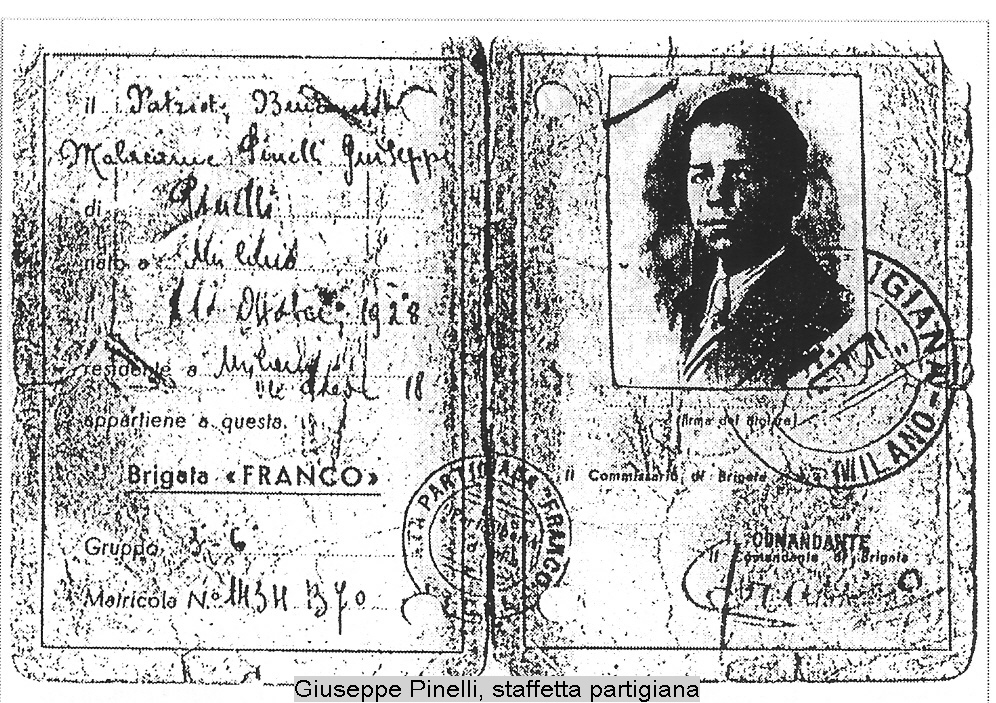 il Patriota
Malacarne Pinelli Giuseppe
di Pinelli
nato a Milano
il Ottobre 1928
residente a Milano
18
appartiene a questa.
Brigata «FRANCO»
Gruppo 3-6
Matricola N.º 1434
PARTIGIANA "FRANCO"
(firma del titolare)
Il Commissario di Brigata
COMANDANTE
Il Comandante di Brigata
MILANO
Giuseppe Pinelli, staffetta partigiana